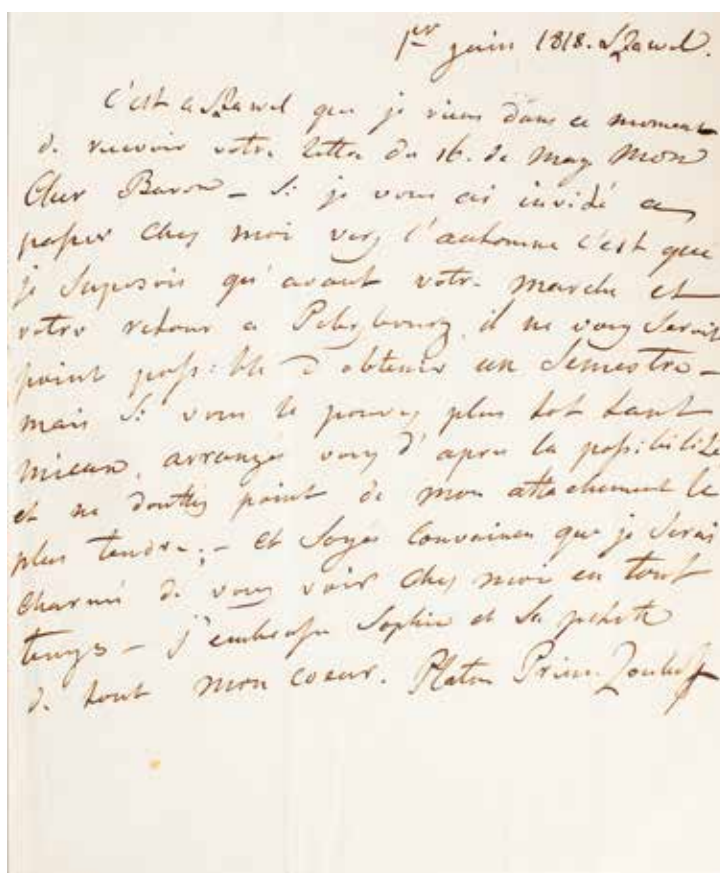 1er juin 1818. Szawel.
C'est a Szawel que je viens dans ce moment
de recevoir votre lettre du 16. de may Mon
Cher Baron – Si je vous ai invidé a
passer chez moi vers l'automne c'est que
je suposois qu'avant votre marche et
votre retour a Petersbourg, il ne vous seroit
point possible d'obtenir un Semestre –
mais si vous le pouvez plus tot tant
mieux, arrangés vous d'apres la possibilité
et ne douttés point de mon attachement le
plus tendre; – et soyés convaincu que je serai
charmé de vous voir chez moi en tout
temps – j'embrasse Sophie et sa petite
de tout mon coeur. Platon Prince Zouboff